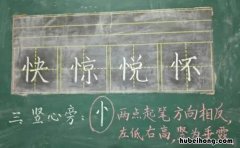 快 惊 悦 怀
三、竖心旁：忄 两点起笔方向相反,
左低右高 竖为垂露
hubeihong.com